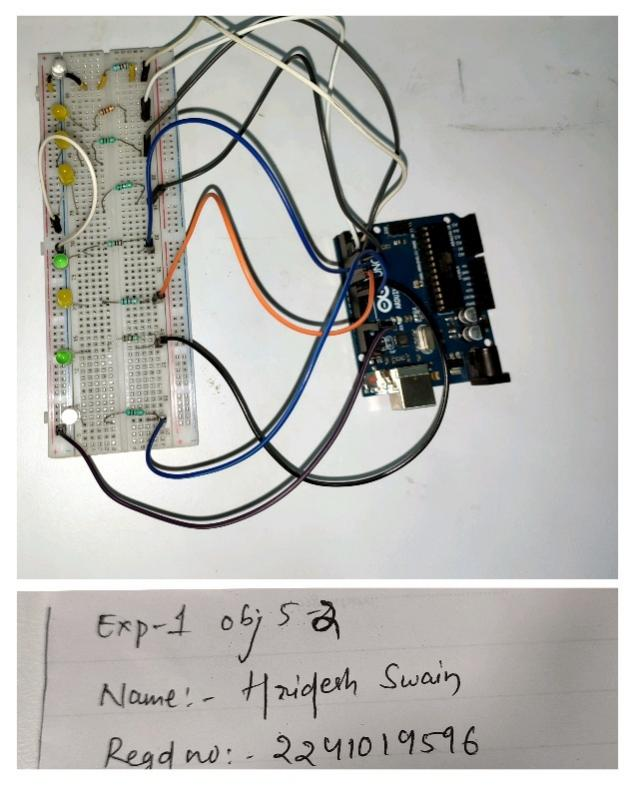 UNO
Exp-1 obj 5-2
Name:- Hridesh Swain
Regd no:- 2241019596